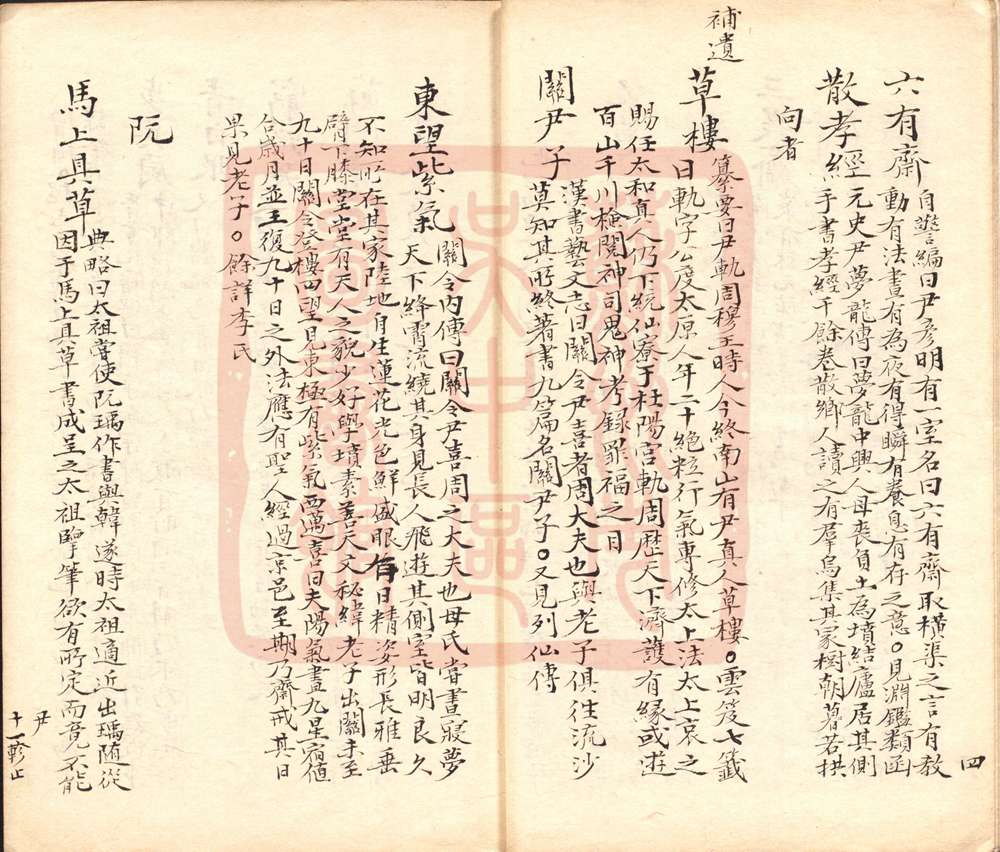 四
六有齋 自警編曰尹彥明有一室名曰六有齋取橫渠之言有教
動有法晝有為夜有得瞬有養息有存之意○見淵鑑類函
散孝經 元史尹夢龍傳曰夢龍中興人母喪負土為墳結廬居其側
手書孝經千餘卷散鄉人讀之有羣烏集其家樹朝暮若拱
向者
補遺
草樓 纂要曰尹軌周穆王時人今終南山有尹真人草樓○雲笈七籤
曰軌字公度太原人年二十絕粒行氣專修太上法太上哀之
賜任太和真人仍下統仙寮于杜陽宮軌周歷天下濟護有緣或遊
百山千川檢閱神司鬼神考錄罪福之目
關尹子 漢書藝文志曰關令尹喜者周大夫也與老子俱往流沙
莫知其所終著書九篇名關尹子○又見列仙傳
東望紫氣 關令內傳曰關令尹喜周之大夫也母氏嘗晝寢夢
天下絳霄流繞其身見長人飛遊其側室皆明良久
不知所在其家陸地自生蓮花光色鮮盛眼有日精姿形長雅垂
臂下膝堂堂有天人之貌少好學墳素善天文秘緯老子出關未至
九十日關令登樓四望見東極有紫氣西邁喜曰夫陽氣晝九星宿值
合歲月並王復九十日之外法應有聖人經過京邑至期乃齋戒其日
果見老子○餘詳李氏
阮
馬上具草 典略曰太祖嘗使阮瑀作書與韓遂時太祖適近出瑀隨從
因于馬上具草書成呈之太祖擥筆欲有所定而竟不能
尹
十一軫止